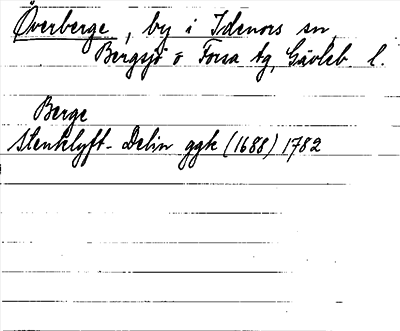 Överberge, by i Idenors sn,
Bergsjö o Forsa tg, Gävleb. l.
Berge
Stenklyft-Delin ggk (1688) 1782